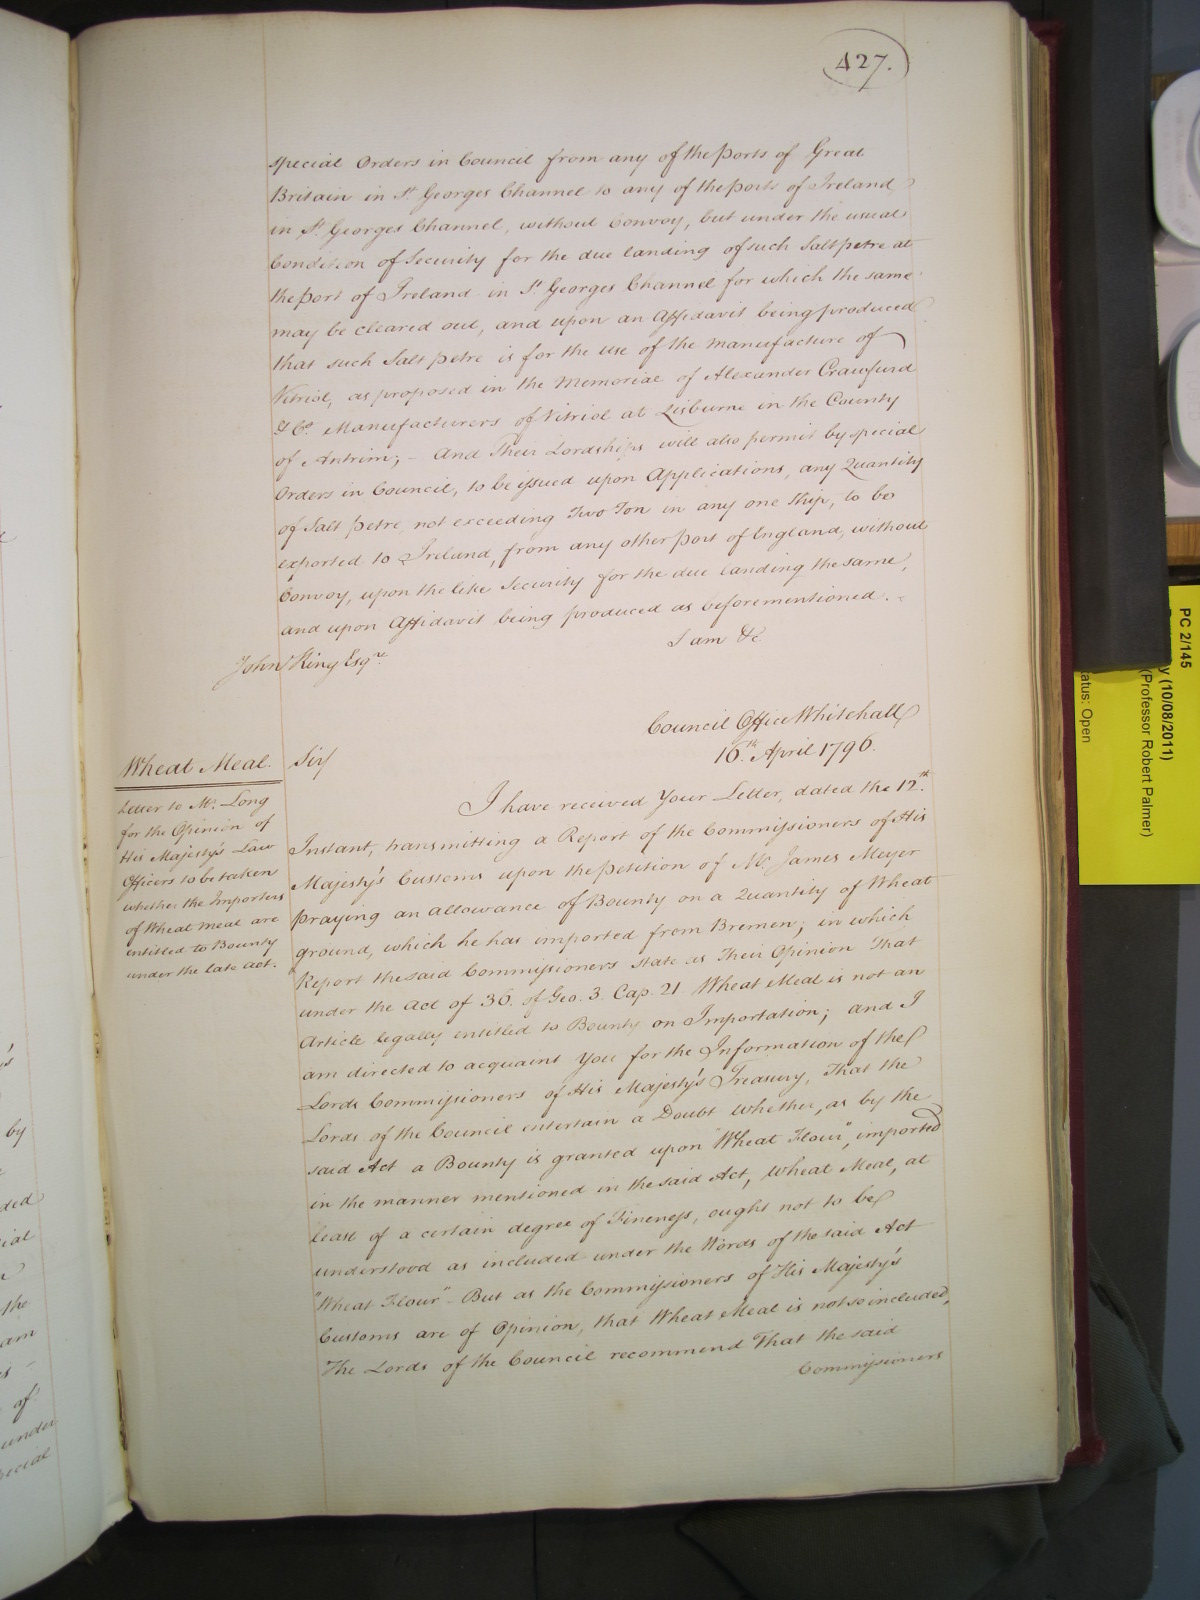 427.
special Orders in Council from any of the Ports of Great
Britain in St Georges Channel to any of the ports of Ireland
in St Georges Channel, without Convoy, but under the usual
Condition of Security for the due landing of such Saltpetre at
the port of Ireland in St Georges Channel for which the same
may be cleared out, and upon an Affidavit being produced
that such Salt petre is for the use of the manufacture of
Vitriol, as proposed in the Memorial of Alexander Crawfurd
& Co. Manufacturers of Vitriol at Lisburne in the County
of Antrim; - And Their Lordships will also permit by special
Orders in Council, to be issued upon Applications, any Quantity
of Salt petre, not exceeding Two Ton in any one Ship, to be
exported to Ireland, from any other port of England, without
Convoy, upon the like Security for the due landing the same,
and upon Affidavit being produced as beforementioned. -
I am &c
John King Esqre.
Council Office Whitehall
16th. April 1796.
Wheat Meal.
Letter to Mr. Long
for the Opinion of
His Majesty's Law
Officers to be taken
whether the Importers
of Wheat Meal are
entitled to Bounty
under the late Act.
Sir
I have received Your Letter, dated the 12th.
Instant, transmitting a Report of the Commissioners of His
Majesty's Customs upon the petition of Mr. James Meyer
praying an allowance of Bounty on a Quantity of Wheat
ground, which he has imported from Bremen; in which
Report the said Commissioners state as Their Opinion That
under the Act of 36. of Geo. 3. Cap. 21. Wheat Meal is not an
Article legally entitled to Bounty on Importation; and I
am directed to acquaint You for the Information of the
Lords Commissioners of His Majesty's Treasury, That the
Lords of the Council entertain a Doubt whether, as by the
said Act a Bounty is granted upon "Wheat Flour", imported
in the manner mentioned in the said Act, Wheat Meal, at
least of a certain degree of Fineness, ought not to be
understood as included under the Words of the said Act
"Wheat Flour" - But as the Commissioners of His Majesty's
Customs are of Opinion, that Wheat Meal is not so included,
The Lords of the Council recommend That the said
Commissioners
by
ded
ial
the
am
of
under
pecial
PC 2/145
y (10/08/2011)
(Professor Robert Palmer)
atus: Open